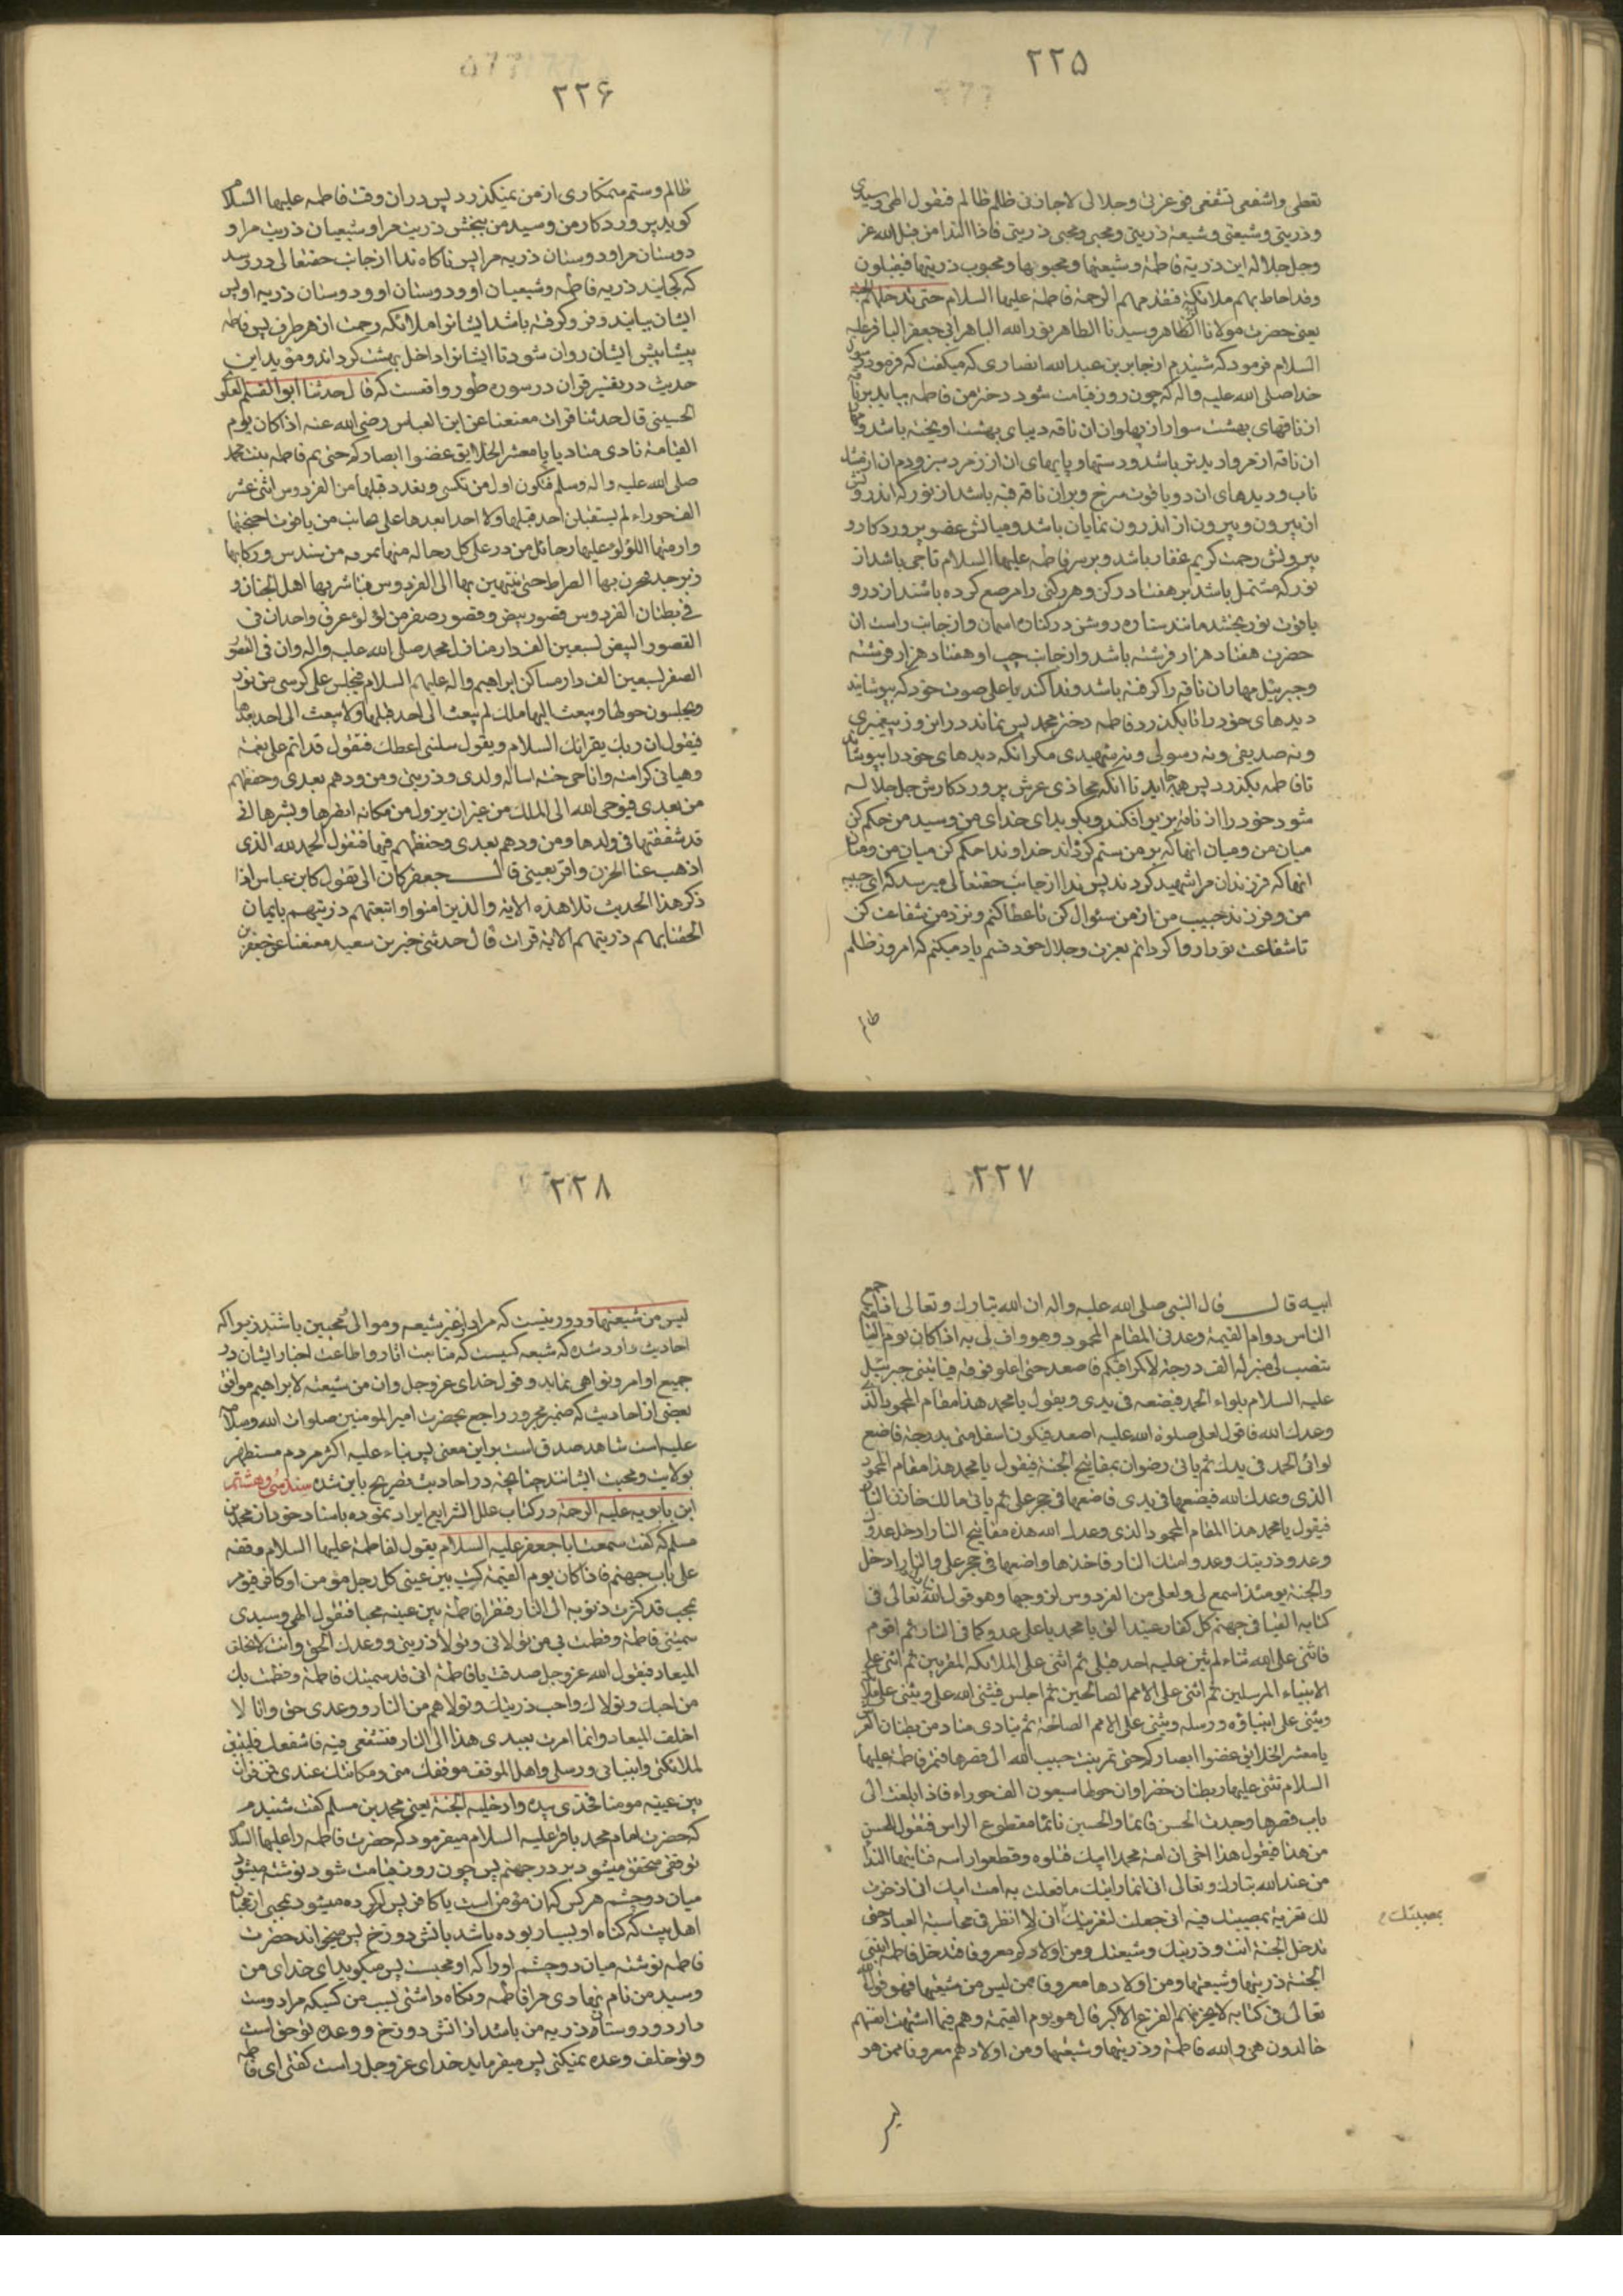 ۲۲۵
تعطی واشفعی تشفعی فوعزتی وجلالی لاجازنی ظلم ظالم فتقول الهی وسیدی
وذریتی وشیعتی وشیعة ذریتی ومحبی ومحبی ذریتی فاذا النداء من قبل الله عز
وجل جلاله این ذریة فاطمة وشیعتها ومحبوبها ومحبوب ذریتها فیقبلون
وقد احاط بهم ملائکة فتقدمهم الرحمة فاطمة علیها السلام حتی تدخلهم الجنة
یعنی حضرت مولانا الطاهر وسیدنا الطاهر نور الله الباهر ابی جعفر الباقر علیه
السلام فرمود که شنیدم از جابر بن عبدالله انصاری که میکفت که فرمود رسول
خدا صلی الله علیه واله که چون روز قیامت شود دختر من فاطمه بیاید بر ناقه
از ناقهای بهشت سوار از پهلوان ان ناقه دیبای بهشت اویخته باشد و
ان ناقه از مروارید تر باشد ودستها و پایهای ان از زمرد سبز و دم ان از مشک
ناب ودیدهای ان دو یاقوت سرخ وبران ناقه قبه باشد از نور که اندرونش
از بیرون وبیرون از اندرون نمایان باشد ومیانش عفو پروردکار و
بیرونش رحمت کریم غفار باشد وبر سر فاطمه علیها السلام تاجی باشد از
نور که مشتمل باشد بر هفتاد رکن وهر رکنی را مرصع کرده باشند از در و
یاقوت نور بخشد مانند ستاره روشن در کناره اسمان واز جانب راست ان
حضرت هفتاد هزار فرشته باشد واز جانب چپ او هفتاد هزار فرشته
وجبرئیل مهار ان ناقه را کرفته باشد وندا کند باعلی صوت خود که بپوشانید
دیدهای خود را تا بکذرد فاطمه دختر محمد پس نماند دران روز پیغمبری
ونه صدیقی ونه رسولی ونه شهیدی مکر انکه دیدهای خود را بپوشانند
تا فاطمه بکذرد پس همی اید تا انکه محاذی عرش پروردکارش جل جلاله
شود خود را از ناقه بزیر افکند وبکوید ای خدای من وسید من حکم کن
میان من ومیان انها که بر من ستم کرده اند خداوندا حکم کن میان من ومیان
انها که فرزندان مرا شهید کردند پس ندا از جانب حقتعالی میرسد که ای حبیبه
من وفرزند حبیب من از من سئوال کن تا عطا کنم ونزد من شفاعت کن
تا شفاعت تو را روا کردانم بعزت وجلال خود قسم یاد میکنم که امروز ظلم
ظالم
۲۲۶
ظالم وستم ستمکاری از من نمیکذرد پس دران وقت فاطمه علیها السلام
کوید پروردکار من وسید من ببخش ذریت مرا وشیعیان ذریت مرا و
دوستان مرا ودوستان ذریه مرا پس ناکاه ندا از جانب حقتعالی در رسد
که کجایند ذریه فاطمه وشیعیان او ودوستان او ودوستان ذریه او پس
ایشان بیایند وفرو کرفته باشد ایشانرا ملائکه رحمت از هر طرف پس فاطمه
پیشاپیش ایشان روان شود تا ایشانرا داخل بهشت کرداند ومؤید این
حدیث در تفسیر قران در سوره طور واقعست که قال حدثنا ابو القسم العلوی
الحسینی قال حدثنا فرات معنعنا عن ابن العباس رضی الله عنه اذا کان یوم
القیامة نادی مناد یا معشر الخلایق غضوا ابصارکم حتی تمر فاطمه بنت محمد
صلی الله علیه واله وسلم فتکون اول من تکسی وبعدد قبلها من الفردوس اثنی عشر
الف حوراء لم یستقبلن احد قبلها ولا احدا بعدها علی نجائب من یاقوت اجنحتها
وازمتها اللؤلؤ علیها رحائل من در علی کل رحاله منها نمرقه من سندس ورکابها
زبرجد یجزن بها الصراط حتی ینتهین بها الی الفردوس فتباشر بها اهل الجنان و
فی بطنان الفردوس قصور بیض وقصور صفر من لؤلؤ عرق واحد ان فی
القصور البیض لسبعین الف دار منازل محمد صلی الله علیه واله وان فی القصور
الصفر لسبعین الف دار مساکن ابراهیم واله علیهم السلام فتجلس علی کرسی من نور
ویجلسون حولها ویبعث الیها ملک لم یبعث الی احد قبلها ولا یبعث الی احد بعدها
فیقول ان ربک یقرائک السلام ویقول سلنی اعطک فتقول قد اتم علی نعمته
وهیأنی کرامته واباحنی جنته اساله ولدی وذریتی ومن ودهم بعدی وحفظهم
من بعدی فیوحی الله الی الملک من غیر ان یزول من مکانه اخبرها وبشرها انی
قد شفعتها فی ولدها ومن ودهم بعدی وحفظهم فیها فتقول الحمد لله الذی
اذهب عنا الحزن واقر بعینی قال جعفر کان ابی یقول کان ابن عباس اذا
ذکر هذا الحدیث تلا هذه الایة والذین امنوا واتبعتهم ذریتهم بایمان
الحقنا بهم ذریتهم الایة فرات قال حدثنی جبر بن سعید معنعنا عن جعفر بن
۲۲۷
ابیه قال قال النبی صلی الله علیه واله ان الله تبارک وتعالی اذا جمع
الناس دوام القیمة وعدنی المقام المحمود وهو واف لی به اذا کان یوم القیامة
تنصب لی منبر له الف درجة لاکمراقیکم فاصعد حتی اعلو فوقه فیاتینی جبرئیل
علیه السلام بلواء الحمد فیضعه فی یدی ویقول یا محمد هذا مقام المحمود الذی
وعدک الله فاقول لعلی صلوة الله علیه اصعد فیکون اسفل منی بدرجة فاضع
لوائی الحمد فی یدک ثم یاتی رضوان بمفاتیح الجنة فیقول یا محمد هذا مقام المحمود
الذی وعدک الله فیضعها فی یدی فاضعها فی حجر علی ثم یاتی مالک خازن النار
فیقول یا محمد هذا المقام المحمود الذی وعدک الله هذه مفاتیح النار ادخل عدوک
وعدو ذریتک وعدو امتک النار فاخذها واضعها فی حجر علی والنار ادخل
والجنة یومئذ اسمع لی ولعلی من العروس لزوجها وهو قول الله تعالی فی
کتابه القیا فی جهنم کل کفار عنید القیا یا محمد یا علی عدوکما فی النار ثم اقوم
فاثنی علی الله ثناء لم یثن علیه احد قبلی ثم اثنی علی الملائکة المقربین ثم اثنی علی
الانبیاء المرسلین ثم اثنی علی الامم الصالحین ثم اجلس فیثنی الله علی ویثنی علی ملائکته
ویثنی علی انبیاؤه ورسله ویثنی علی الامم الصالحة ثم ینادی مناد من بطنان العرش
یا معشر الخلایق غضوا ابصارکم حتی تمر بنت حبیب الله الی قصرها فتمر فاطمة علیها
السلام تثنی علیها ریطتان خضراوان حولها سبعون الف حوراء فاذا بلغت الی
باب قصرها وجدت الحسن قائما والحسین نائما مقطوع الراس فتقول للحسن
من هذا فیقول هذا اخی ان امة محمد ابیک قتلوه وقطعوا راسه فیاتیها النداء
من عند الله تبارک وتعالی انی انما رایتک ما فعلت به امت ابیک انی اذخرت
لک تعزیة بمصیبتک فیه انی جعلت تعزیتک انی لا انظر فی محاسبة العباد حتی
بمصیبتک
تدخل الجنة انت وذریتک وشیعتک ومن اولادکم معروفا فتدخل فاطمه ابنتی
الجنة وذریتها وشیعتها ومن اولادها معروفا ممن لیس من شیعتها فهو قول الله
تعالی فی کتابه لا یحزنهم الفزع الاکبر قال هو یوم القیمة وهم فیما اشتهت انفسهم
خالدون هی والله فاطمة وذریتها وشیعتها ومن اولادهم معروفا ممن هو
لیس
۲۲۸
لیس من شیعتها ودور نیست که مراد از غیر شیعه وموالی محبین باشند زیرا که
احادیث وارد شده که شیعه کیست که متابعت اثار واطاعت اخبار ایشان در
جمیع اوامر ونواهی نماید وقول خدای عزوجل وان من شیعته لابراهیم موافق
بعضی از احادیث که ضمیر مجرور راجع بحضرت امیر المومنین صلوات الله وسلامه
علیه است شاهد صدق است بر این معنی پس بناء علیه اکثر مردم مستظهر
بولایت ومحبت ایشانند چنانچه در احادیث تصریح باین شده سند سی وهشتم
ابن بابویه علیه الرحمة در کتاب علل الشرایع ایراد نموده باسناد خود از محمد بن
مسلم که کفت سمعت ابا جعفر علیه السلام یقول لفاطمة علیها السلام وقفه
علی باب جهنم فاذا کان یوم القیمة کتب بین عینی کل رجل مؤمن او کافر فیؤمر
بمحب قد کثرت ذنوبه الی النار فتقرا فاطمة بین عینیه محبا فتقول الهی وسیدی
سمیتنی فاطمة وفطمت بی من تولانی وتولا ذریتی ووعدک الحق وانت لا تخلف
المیعاد فیقول الله عزوجل صدقت یا فاطمة انی قد سمیتک فاطمة وفطمت بک
من احبک وتولاک واحب ذریتک وتولاهم من النار ووعدی حق وانا لا
اخلف المیعاد وانما امرت بعبدی هذا الی النار فتشفعی فیه فاشفعک فلیتبین
لملائکتی وانبیائی ورسلی واهل الموقف موقفک منی ومکانتک عندی فمن قرات
بین عینیه مومنا فخذی بیده وادخلیه الجنة یعنی محمد بن مسلم کفت شنیدم
که حضرت امام محمد باقر علیه السلام میفرمود که حضرت فاطمه را علیها السلام
توقفی محقق میشود بر در جهنم پس چون روز قیامت شود نوشته میشود
میان دو چشم هر کس که ان مؤمن است یا کافر پس امر کرده میشود بمحبی از محبان
اهل بیت که کناه او بسیار بوده باشد باتش دوزخ پس میخواند حضرت
فاطمه نوشته میان دو چشم او را که او محبت پس میکوید ای خدای من
وسید من نام نهادی مرا فاطمه ونکاه داشتی بسبب من کسیکه مرا دوست
دارد ودوستان ذریه من باشد از اتش دوزخ ووعده تو حق است
وتو خلف وعده نمیکنی پس میفرماید خدای عزوجل راست کفتی ای فاطمه